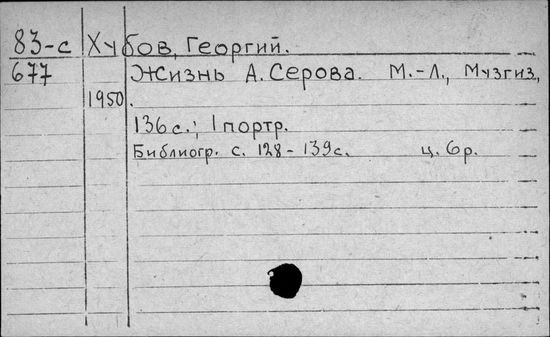 83-с Хубов, Георгий.
677 Жизнь А. Серова. М.-Л., Музгиз,
1950.
136 с.; 1 портр.
Библиогр. с. 128-139с. ц. 6р.